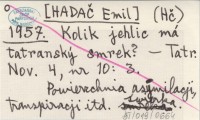 [HADAČ Emil] (Hč)
1957. Kolik jehlic má
tatranský smrek? – Tatr.
Nov. 4, nr 10: 3.
Powierzchnia asymilacji,
transpiracji itd.